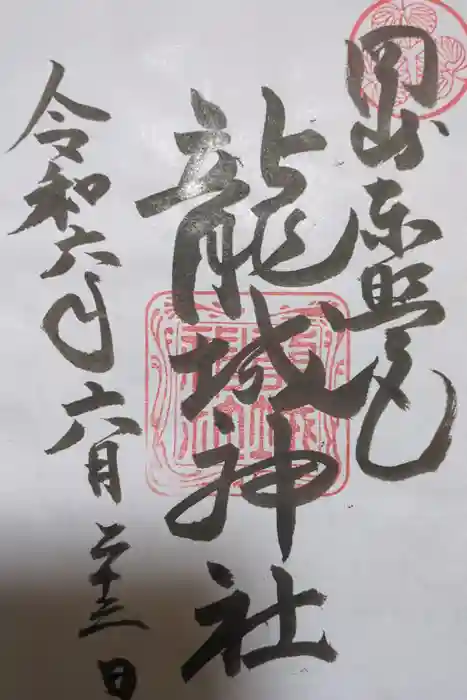 岡崎東照宮
龍城神社
令和六年六月二十三日